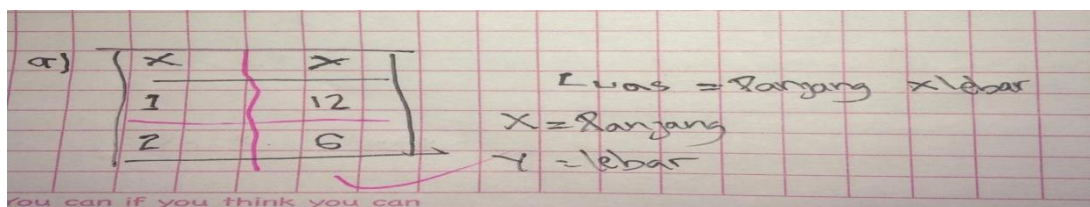 a) x y
1 12
2 6
Luas = Panjang x lebar
X = Panjang
Y = lebar
You can if you think you can